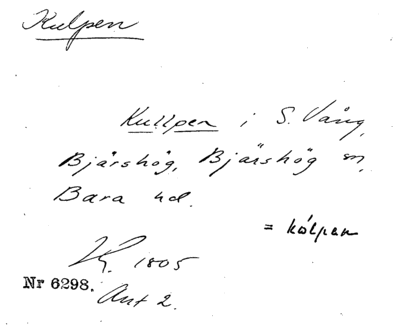 Kulpen
Kullpen i S. Vång,
Bjärshög, Bjärshög sn,
Bara hd.
= kólpen
1805
Nr 6298.
Akt 2.